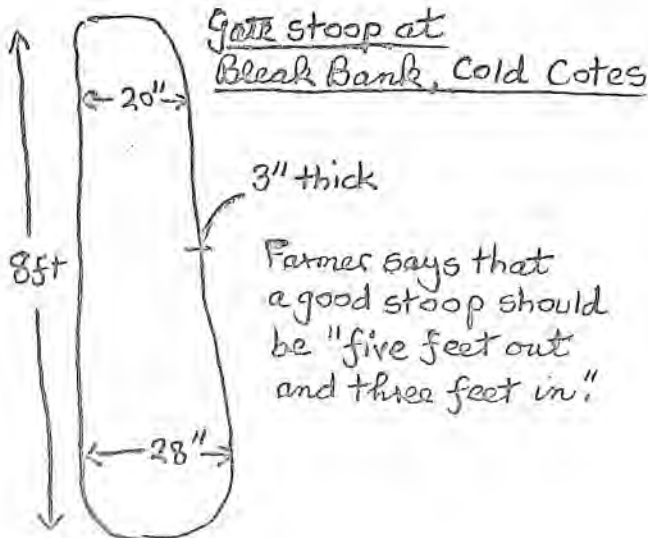 Gate stoop at
Bleak Bank, Cold Cotes
20"
3" thick
8ft
Farmer says that
a good stoop should
be "five feet out
and three feet in."
28"